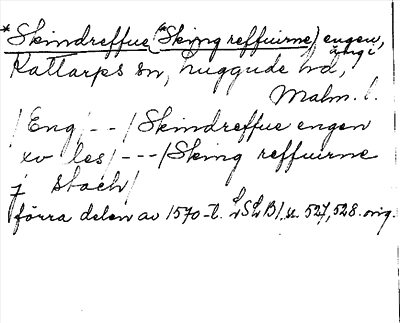 *Skindreffue (*Sking reffuirne) engen,
äng i
Kattarps sn, Luggude hd,
Malm. l.
/Eng/ - - /Skindreffue engen
xv les/ - - - /Sking reffuirne
j stach/
förra delen av 1570-t. LSLB1, s. 527, 528. orig.